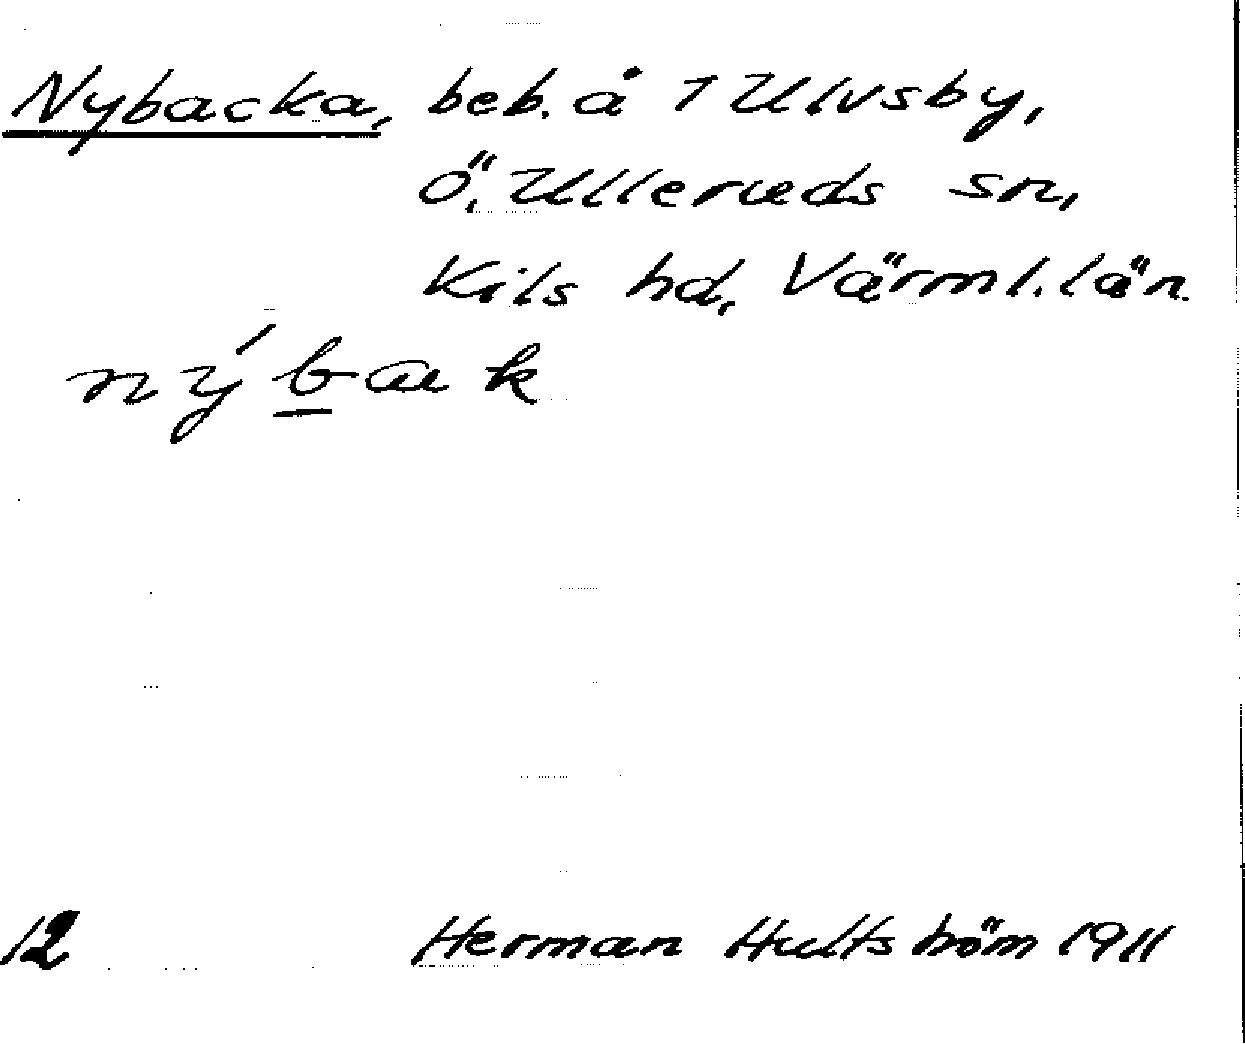 Nybacka, beb. å 1 Ulvsby,
Ö. Ulleruds sn,
Kils hd, Värml. län.
nýbak
12 Herman Hultström 1911